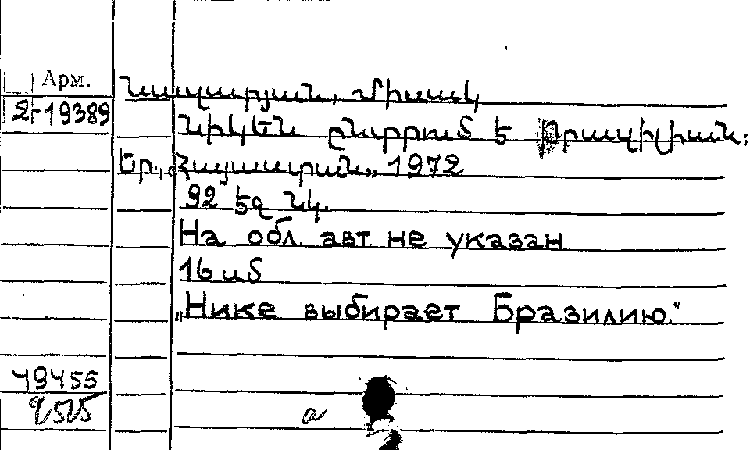 Арм.
Նասլաբյան, Միսակ
ՋԻ-19389
Նիկեն ընտրում է Բրազիլիան,
Եր., „Հայաստան„, 1972
92 էջ նկ.
На обл. авт не указан
16 սմ
„Нике выбирает Бразилию."
49455
a